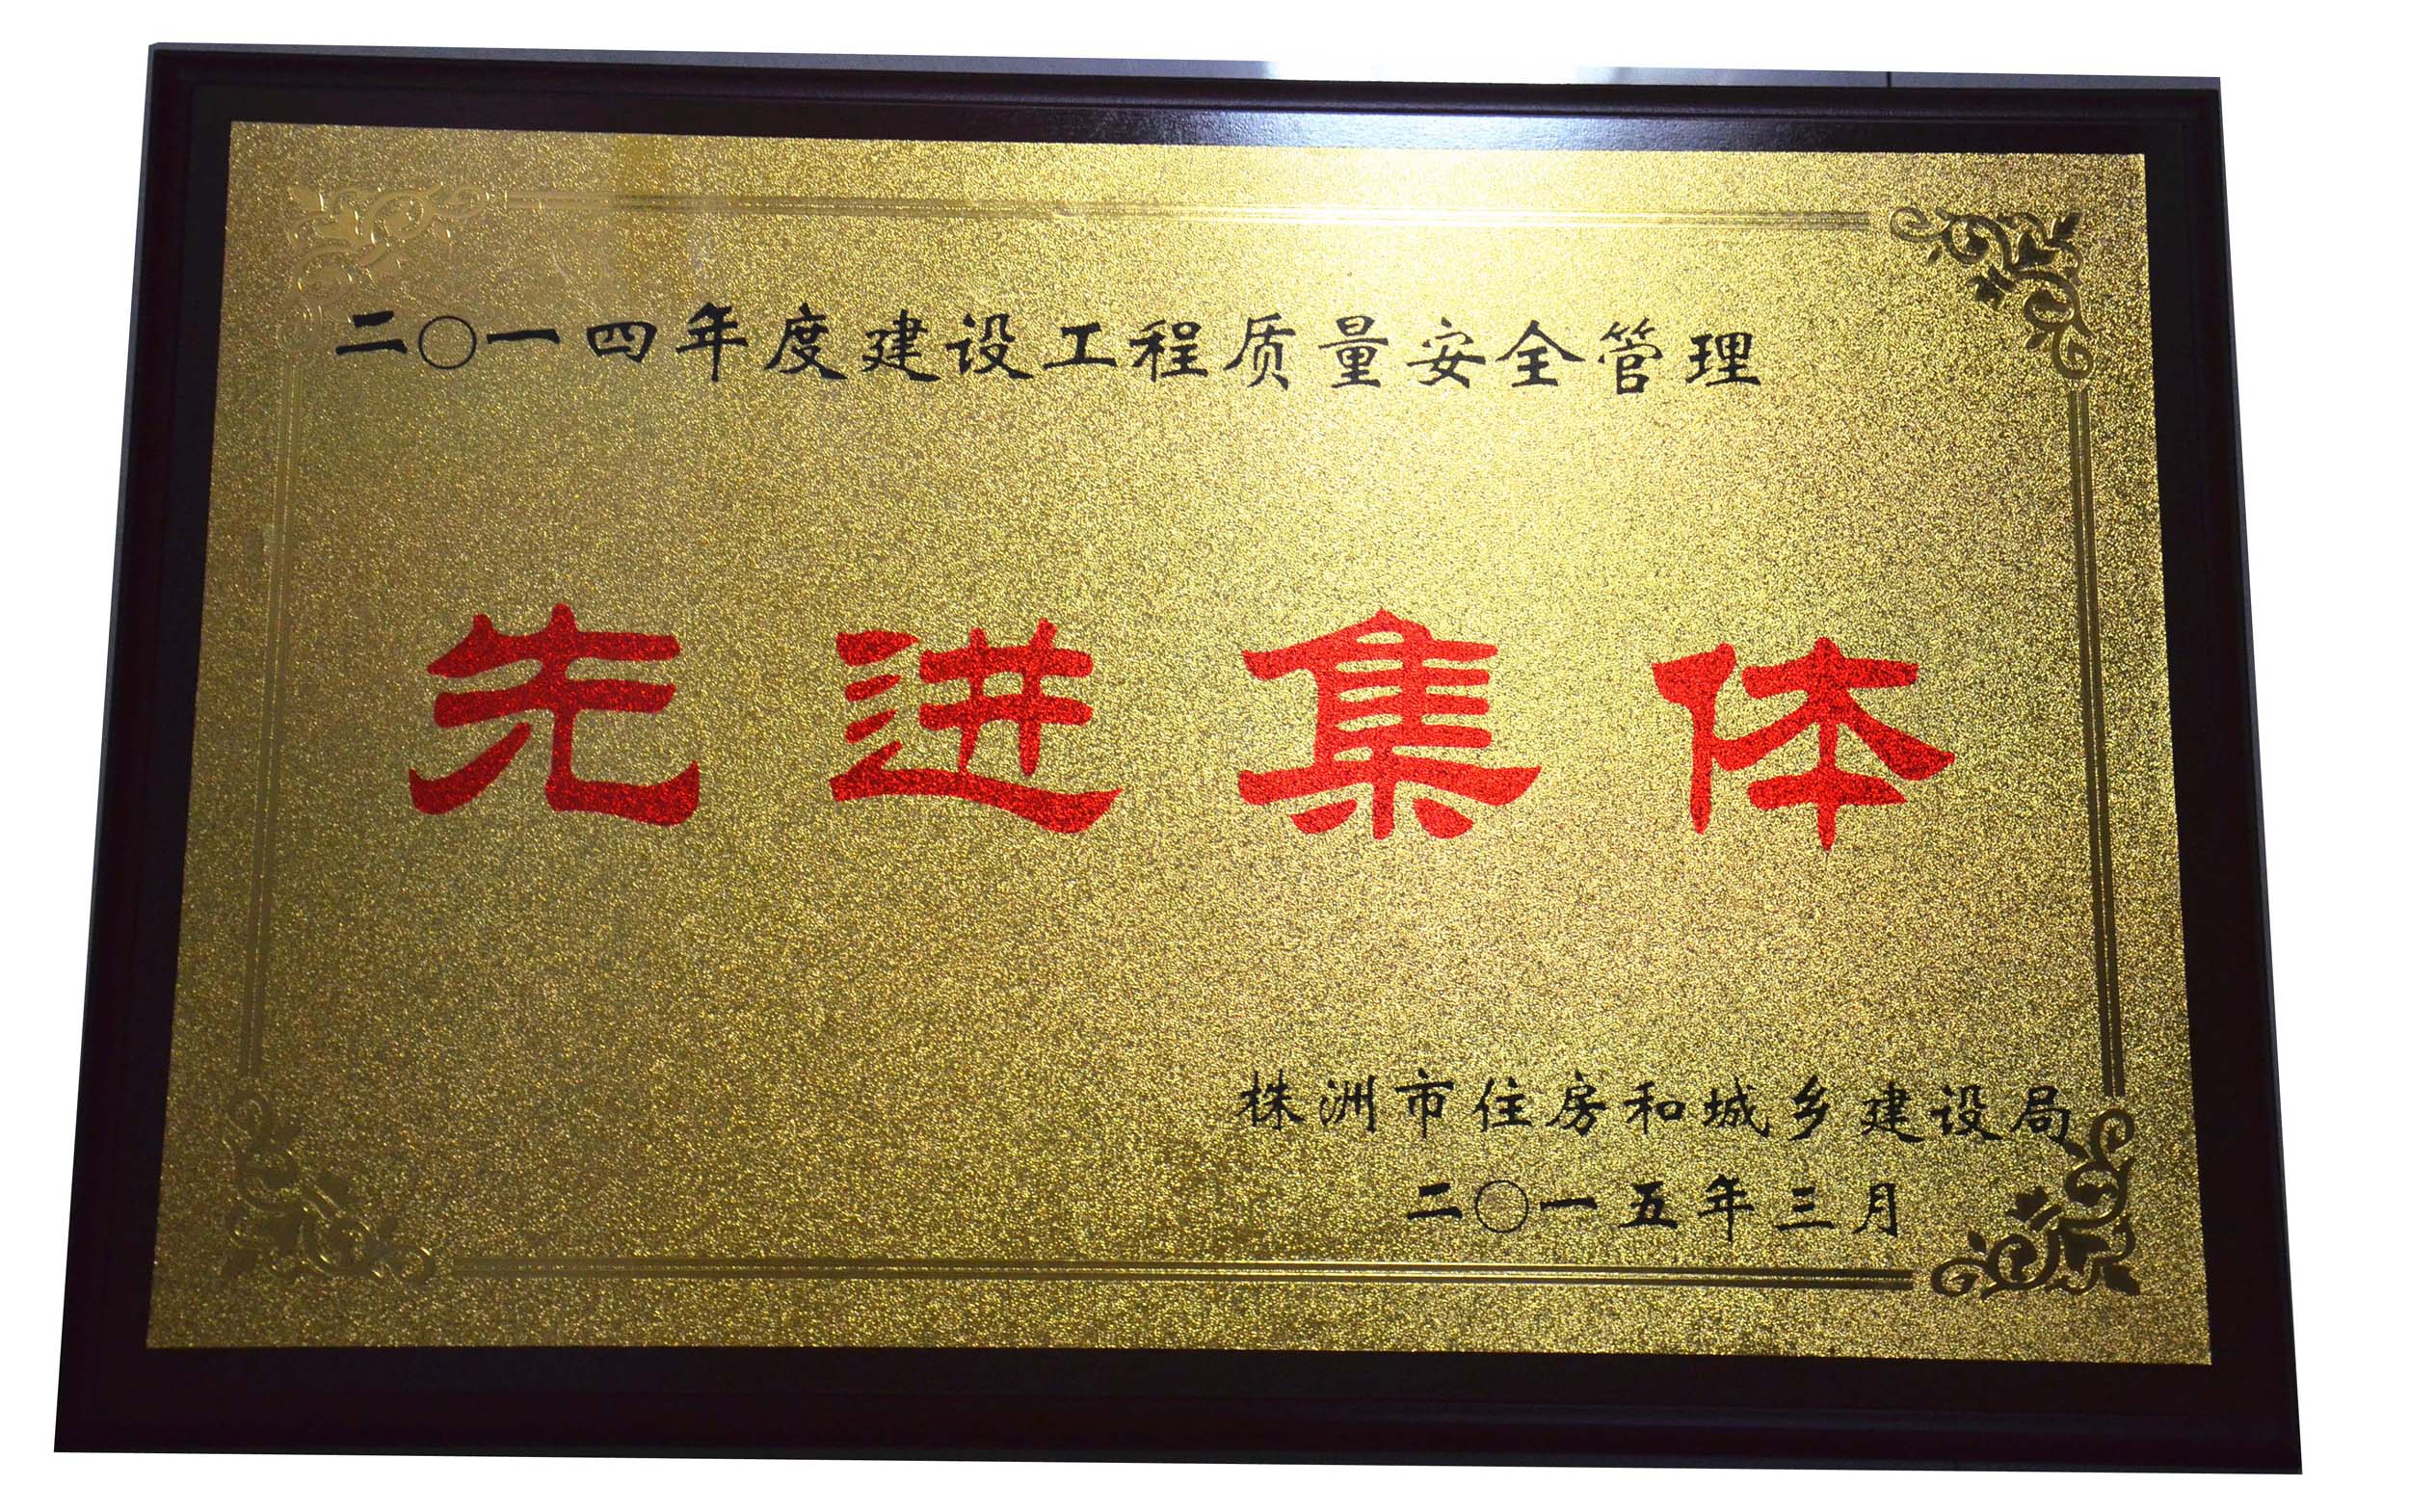 二〇一四年度建设工程质量安全管理
先进集体
株洲市住房和城乡建设局
二〇一五年三月